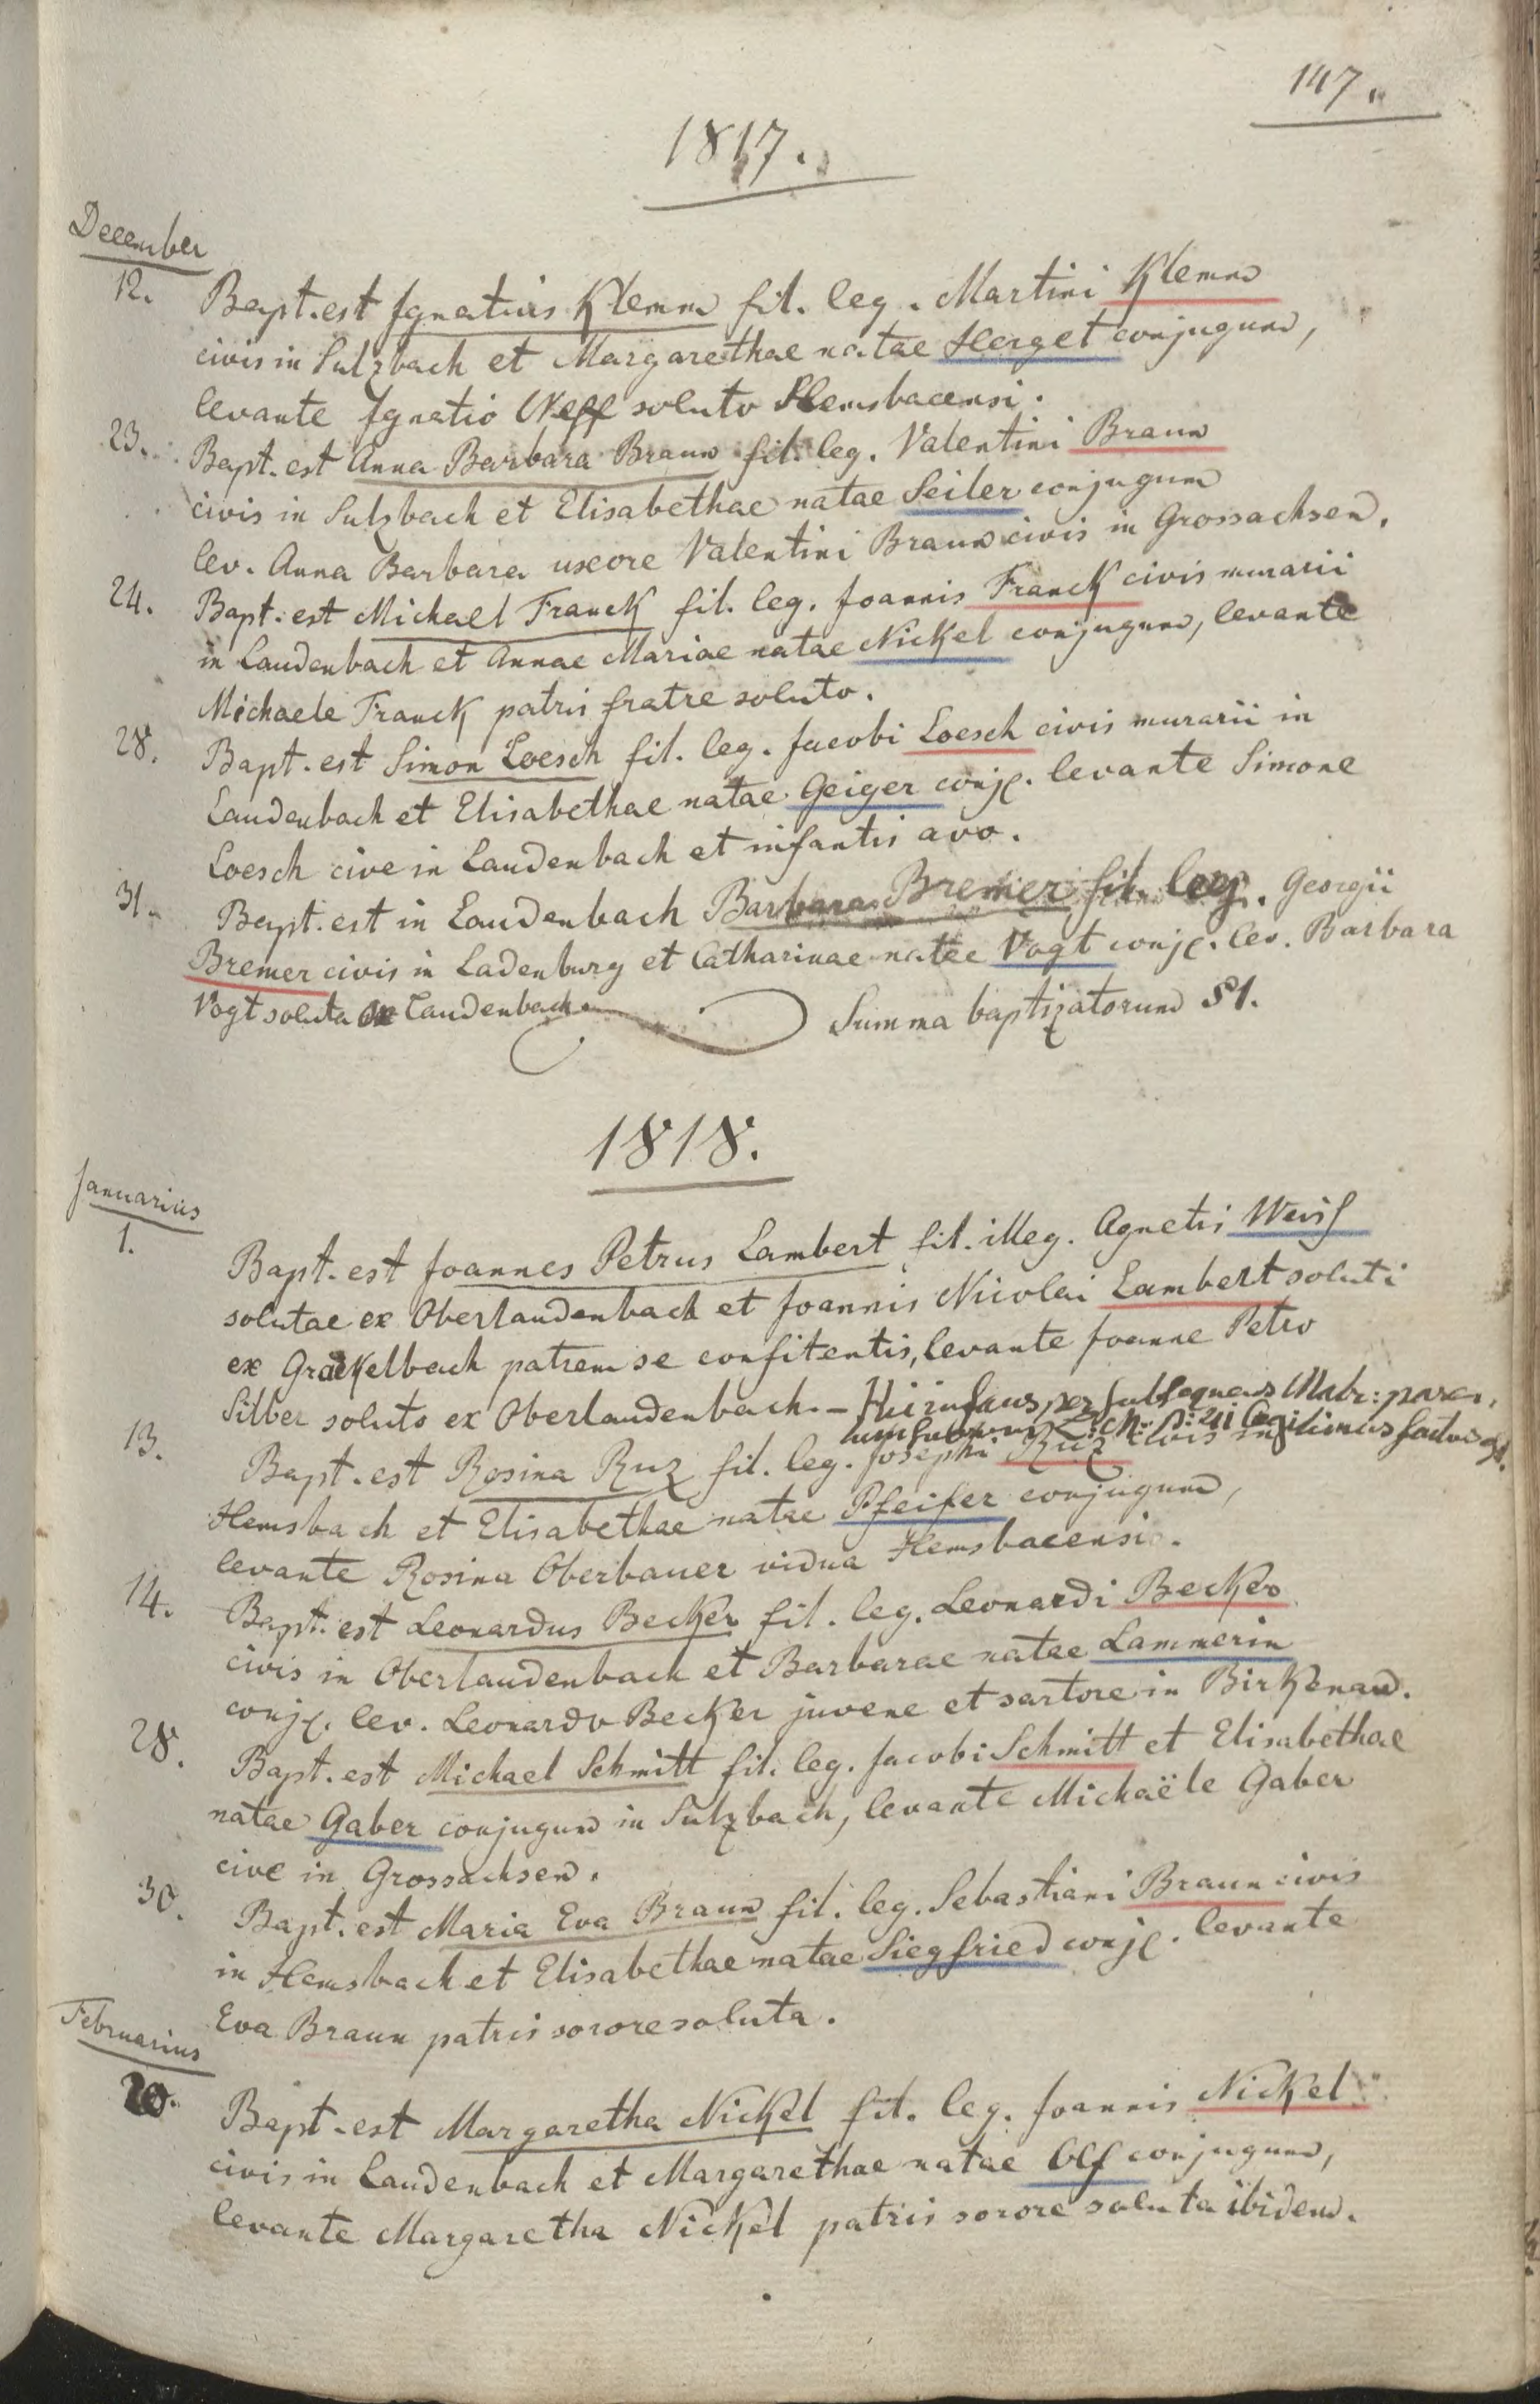 147.
1817.
December
12. Bapt. est Ignatius Klemm fil. leg. Martini Klemm
civis in Sulzbach et Margarethae natae Herget conjugum,
levante Ignatio Neff soluto Hemsbacensi.
23. Bapt. est Anna Barbara Braun fil. leg. Valentini Braun
civis in Sulzbach et Elisabethae natae Seiler conjugum
lev. Anna Barbara uxore Valentini Braun civis in Grossachsen.
24. Bapt. est Michael Franck fil. leg. Joannis Franck civis murarii
in Laudenbach et Annae Mariae natae Nickel conjugum, levante
Michaele Franck patris fratre soluto.
28. Bapt. est Simon Loesch fil. leg. Jacobi Loesch civis murarii in
Laudenbach et Elisabethae natae Geiger conj. levante Simone
Loesch cive in Laudenbach et infantis avo.
31. Bapt. est in Laudenbach Barbara Bremer fil. leg. Georgii
Bremer civis in Ladenburg et Catharinae natae Vogt conj. lev. Barbara
Vogt soluta ex Laudenbach Summa baptizatorum 51.
1818.
Januarius
1. Bapt. est Joannes Petrus Lambert fil. illeg. Agnetis Weiß
solutae ex Oberlaudenbach et Joannis Nicolai Lambert soluti
ex Grackelbach patrem se confitentis, levante Joanne Petro
Silber soluto ex Oberlaudenbach. – Hic infans, per subsequens Matr: paren,
legitimus factus est.
13. Bapt. est Rosina Ruz fil. leg. Josephi Ruz civis in
Hemsbach et Elisabethae natae Pfeifer conjugum,
levante Rosina Oberbauer vidua Hemsbacensi.
14. Bapt. est Leonardus Becker fil. leg. Leonardi Becker
civis in Oberlaudenbach et Barbarae natae Lammerin
conj. lev. Leonardo Becker juvene et sartore in Birkenau.
28. Bapt. est Michael Schmitt fil. leg. Jacobi Schmitt et Elisabethae
natae Gaber conjugum in Sulzbach, levante Michaële Gaber
cive in Grossachsen.
30. Bapt. est Maria Eva Braun fil. leg. Sebastiani Braun civis
in Hemsbach et Elisabethae natae Siegfried conj. levante
Eva Braun patris sorore soluta.
Februarius
20. Bapt. est Margaretha Nickel fil. leg. Joannis Nickel
civis in Laudenbach et Margarethae natae Olf conjugum,
levante Margaretha Nickel patris sorore soluta ibidem.